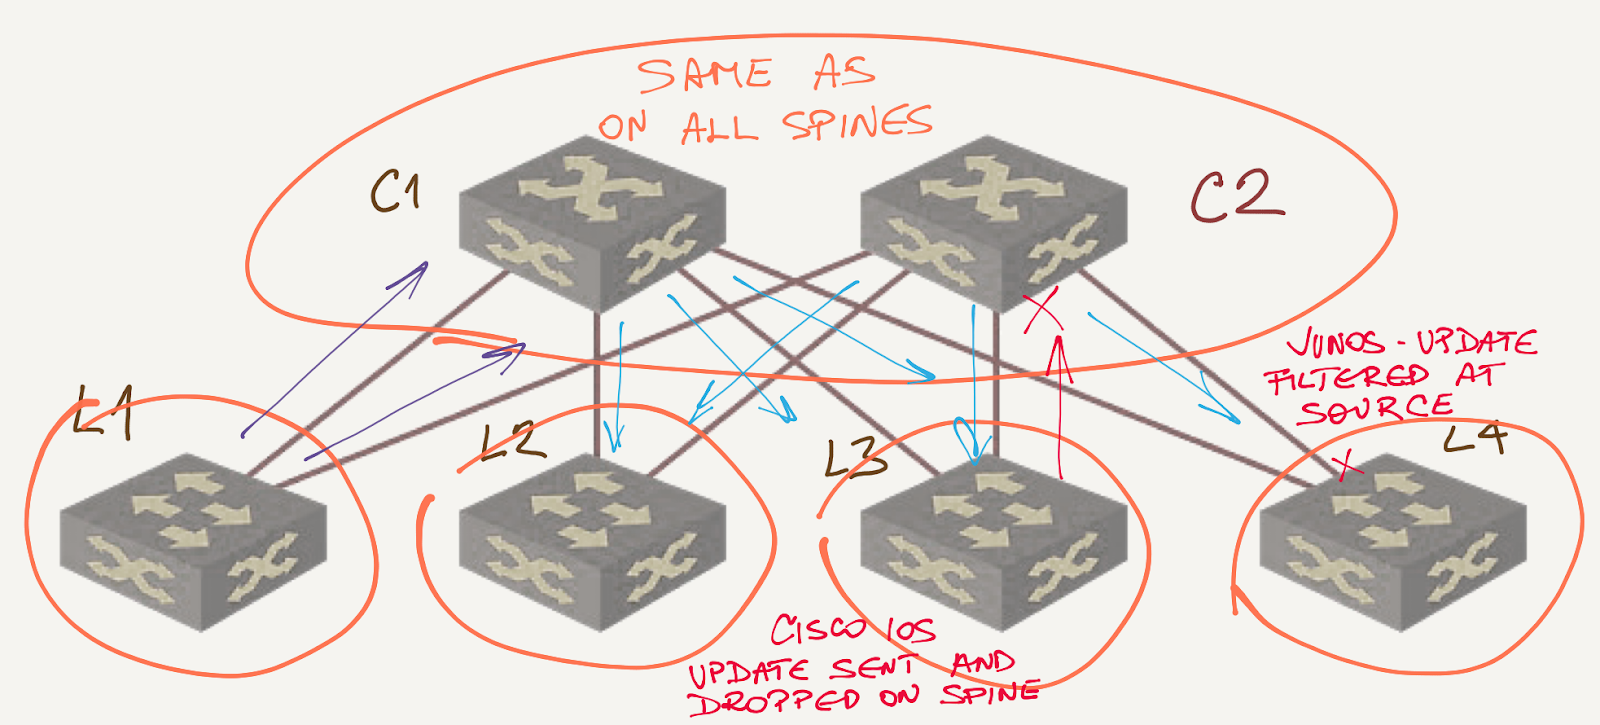 SAME AS
ON ALL SPINES
C1
C2
JUNOS - UPDATE
FILTERED AT
SOURCE
L1
L2
L3
L4
CISCO IOS
UPDATE SENT AND
DROPPED ON SPINE